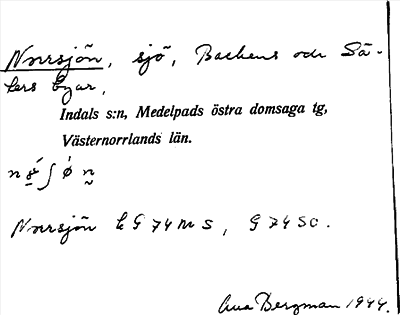 Norrsjön, sjö, Backens och Sä-
ters byar,
Indals s:n, Medelpads östra domsaga tg,
Västernorrlands län.
Norrsjön k G 74 m s, G 74 so.
Ana Bergman 1944.